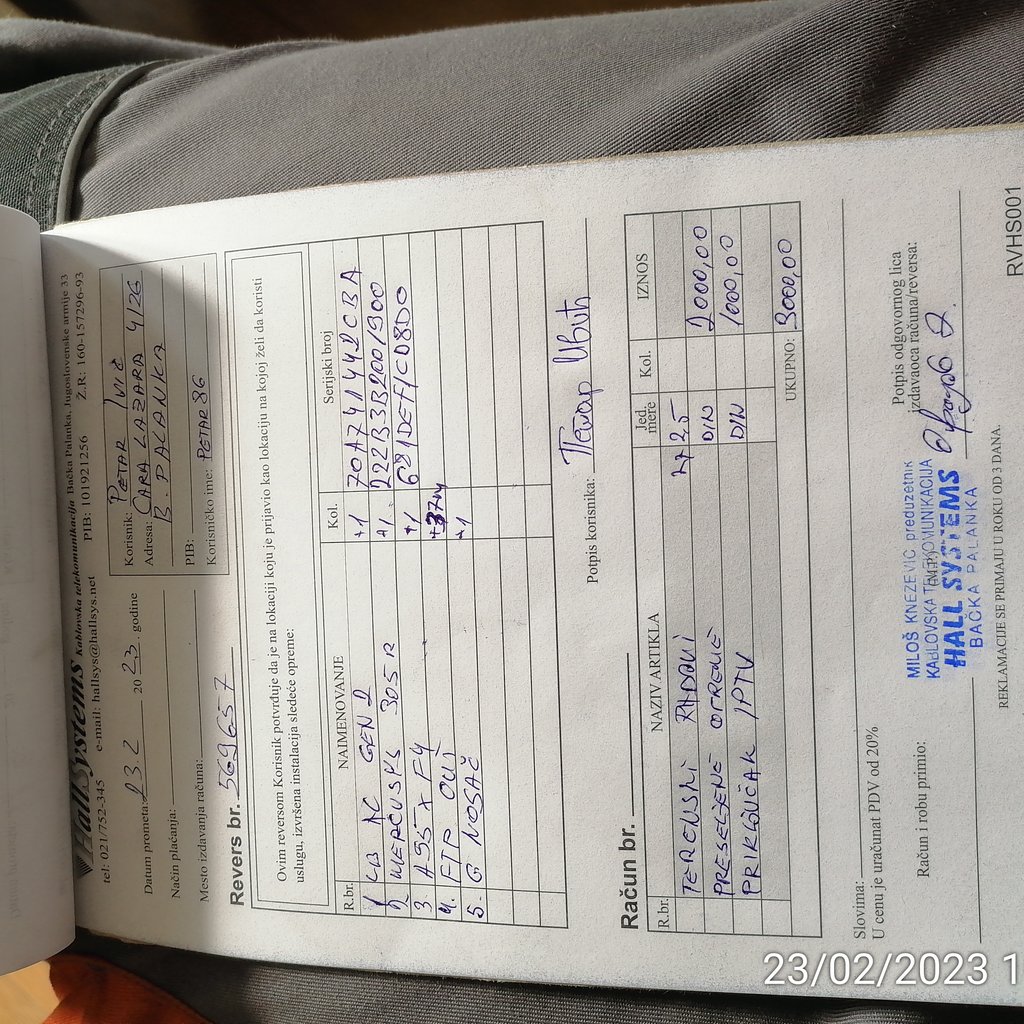 HallSystems Kablovska telekomunikacija Bačka Palanka, Jugoslovenske armije 33
tel: 021/752-345 e-mail: hallsys@hallsys.net PIB: 101921256 Ž.R.: 160-157296-93
Datum prometa: 23.2 2023. godine
Način plaćanja:
Mesto izdavanja računa:
Korisnik: PETAR IVIĆ
Adresa: CARA LAZARA 4/26
B. PALANKA
PIB:
Korisničko ime: PETAR86
Revers br. 569657
Ovim reversom Korisnik potvrđuje da je na lokaciji koju je prijavio kao lokaciju na kojoj želi da koristi
uslugu, izvršena instalacija sledeće opreme:
R.br. NAIMENOVANJE Kol. Serijski broj
1 AC GEN 2 +1 70A741442CBA
2 MERCUSYS 305R +1 222B3B2001900
3. A55XF4 +1
4. FTP OUT
5. G NOSAČ +1
Potpis korisnika: Петар Ивић
Račun br.
R.br. NAZIV ARTIKLA Jed. mere Kol. IZNOS
TERENSKI RADOVI
PRESELJENJE OPREME DIN 2000,00
PRIKLJUČAK IPTV DIN 1000,00
UKUPNO: 3000,00
Slovima:
U cenu je uračunat PDV od 20%
Račun i robu primio:
Potpis odgovornog lica
izdavaoca računa/reversa:
MILOŠ KNEZEVIĆ preduzetnik
KABLOVSKA TELEKOMUNIKACIJA
HALL SYSTEMS
BAČKA PALANKA
REKLAMACIJE SE PRIMAJU U ROKU OD 3 DANA.
RVHS001
23/02/2023 1